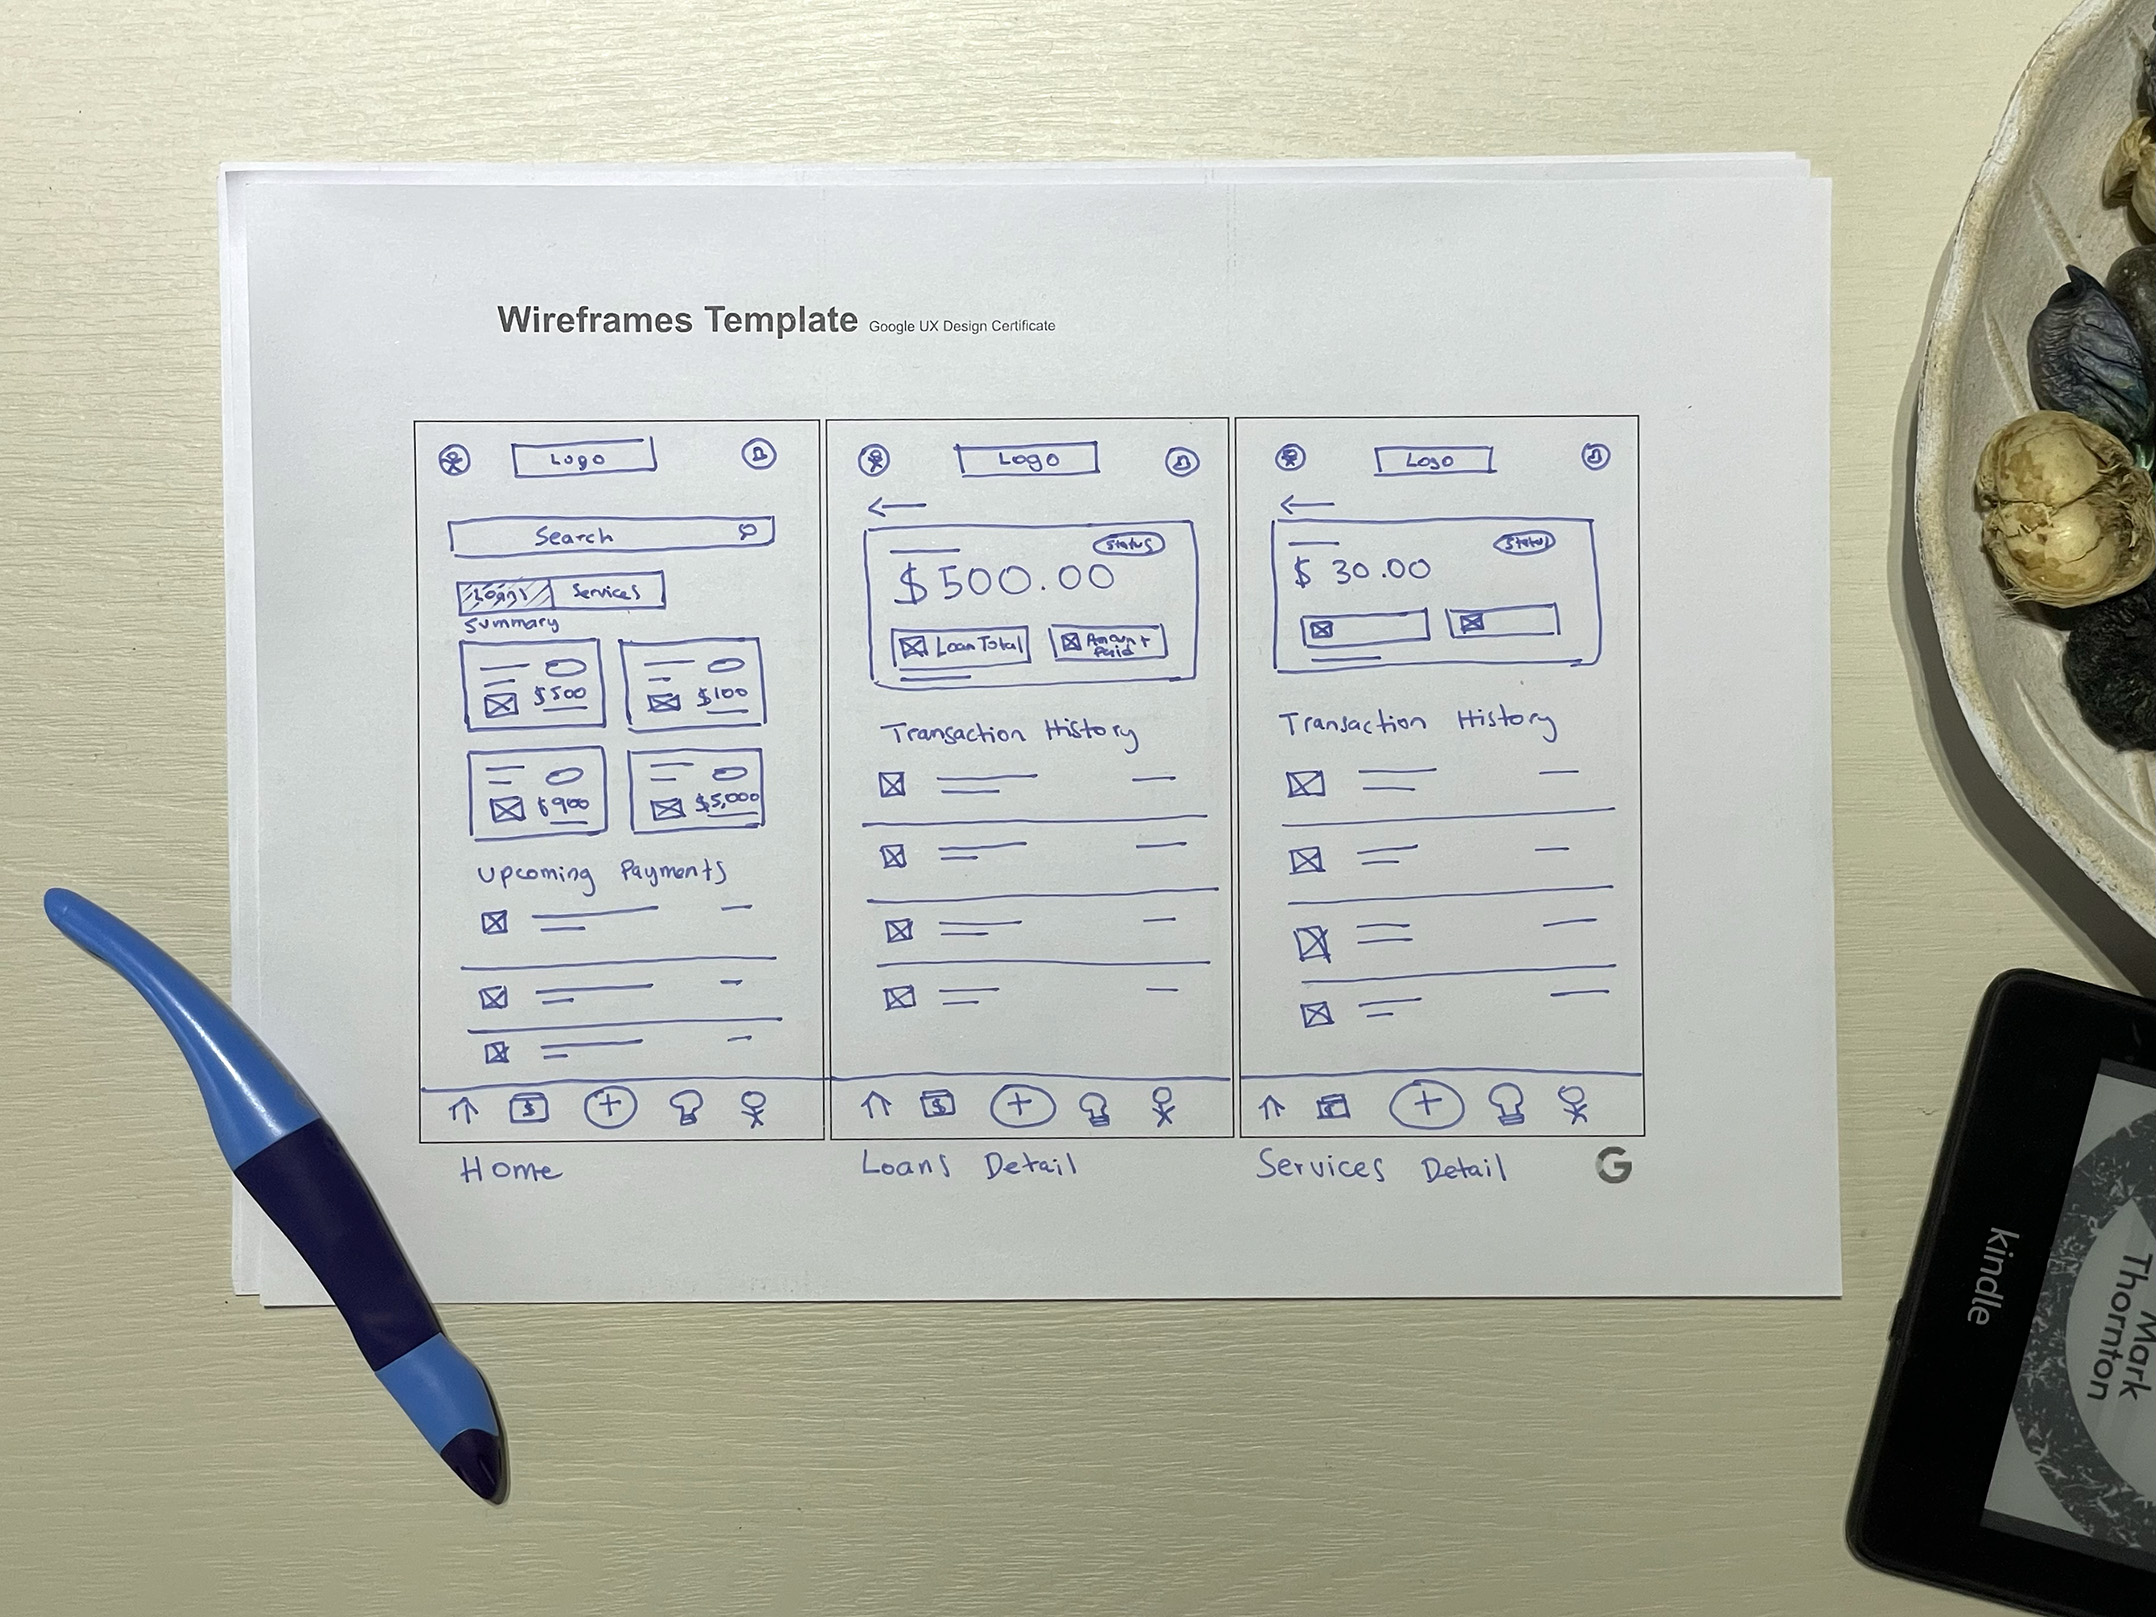 Wireframes Template Google UX Design Certificate
Logo
Search
Loans Services
Summary
$500 $100
$900 $5,000
Upcoming Payments
$
Home
Logo
Status
$500.00
Loan Total Amount Paid
Transaction History
$
Loans Detail
Logo
Status
$ 30.00
Transaction History
Services Detail
G
kindle
Mark
Thornton